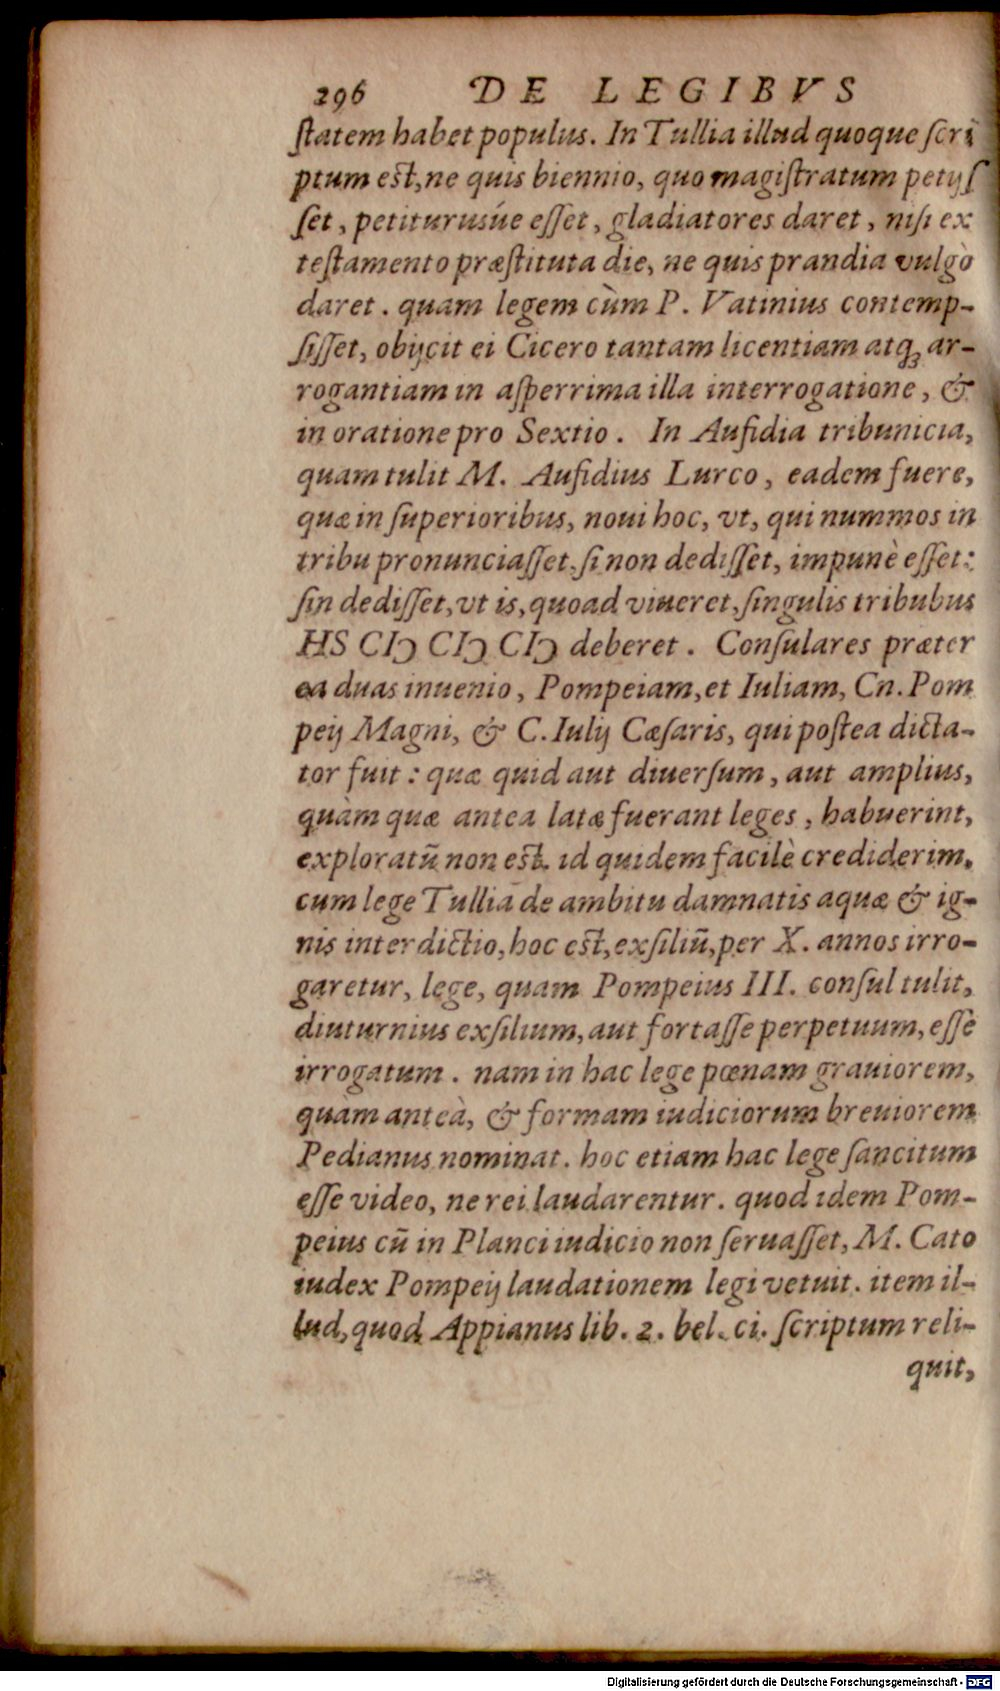 296 DE LEGIBVS
ſtatem habet populus. In Tullia illud quoque ſcri
ptum est, ne quis biennio, quo magiſtratum petijſ
ſet, petiturusúe eſſet, gladiatores daret, niſi ex
teſtamento præſtituta die, ne quis prandia vulgò
daret. quam legem cùm P. Vatinius contemp-
ſiſſet, obijcit ei Cicero tantam licentiam atq; ar-
rogantiam in aſperrima illa interrogatione, &
in oratione pro Sextio. In Aufidia tribunicia,
quam tulit M. Aufidius Lurco, eadem fuere,
quæ in ſuperioribus, noui hoc, vt, qui nummos in
tribu pronunciaſſet, ſi non dediſſet, impunè eſſet:
ſin dediſſet, vt is, quoad viueret, ſingulis tribubus
HS CIↃ CIↃ CIↃ deberet. Conſulares præter
ea duas inuenio, Pompeiam, et Iuliam, Cn. Pom
peij Magni, & C. Iulij Cæſaris, qui poſtea dicta-
tor fuit: quæ quid aut diuerſum, aut amplius,
quàm quæ antea latæ fuerant leges, habuerint,
exploratū non est. id quidem facilè crediderim,
cum lege Tullia de ambitu damnatis aquæ & ig-
nis interdictio, hoc est, exſiliū, per X. annos irro-
garetur, lege, quam Pompeius III. conſul tulit,
diuturnius exſilium, aut fortaſſe perpetuum, eſſe
irrogatum. nam in hac lege pœnam grauiorem,
quàm anteà, & formam iudiciorum breuiorem
Pedianus nominat. hoc etiam hac lege ſancitum
eſſe video, ne rei laudarentur. quod idem Pom-
peius cū in Planci iudicio non ſeruaſſet, M. Cato
iudex Pompeij laudationem legi vetuit. item il-
lud, quod Appianus lib. 2. bel. ci. ſcriptum reli-
quit,
Digitalisierung gefördert durch die Deutsche Forschungsgemeinschaft - DFG